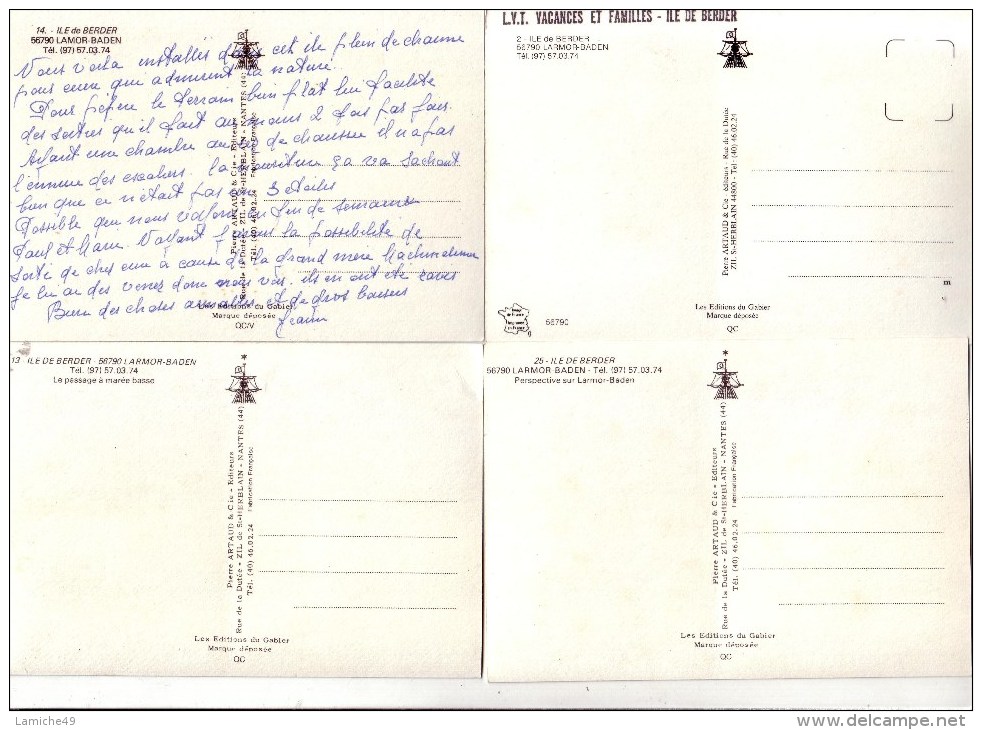 14. - ILE de BERDER
56790 LAMOR-BADEN
Tél. (97) 57.03.74
Vous voila installés dans cet ile plein de charme
pour ceux qui admirent la nature.
le terrain bien plat lui facilite
des sorties qu'il fait au moins 2 fois par jour.
Ayant une chambre au rez de chaussée il n a pas
l'ennuie des escaliers. la nourriture ça va sachant
bien que ce n'était pas un 3 étoiles
Possible que nous
Paul et la possibilité de
de chez eux à cause de la grand mère
je lui ai des verres dont ils en ont été ravis
Bien des choses aimables et de gros baisers
Pierre ARTAUD & Cie - Editeurs
Rue de la Dutée - ZIL de St-HERBLAIN - NANTES (44)
Tél. (40) 46.02.24 Fabrication Française
Les Editions du Gabier
Marque déposée
QC/V
L.V.T. VACANCES ET FAMILLES - ILE DE BERDER
2 - ILE de BERDER
56790 LARMOR-BADEN
Tél. (97) 57.03.74
Pierre ARTAUD & Cie - éditeurs - Rue de la Dutée
ZIL S.-HERBLAIN 44800 - Tél: (40) 46.02.24
m
56790
Les Editions du Gabier
Marque déposée
QC
13 - ILE DE BERDER - 56790 LARMOR-BADEN
Tél. (97) 57.03.74
Le passage à marée basse
Pierre ARTAUD & Cie - Editeurs
Rue de la Dutée - ZIL de St-HERBLAIN - NANTES (44)
Tél. (40) 46.02.24 Fabrication Française
Les Editions du Gabier
Marque déposée
QC
25 - ILE DE BERDER
56790 LARMOR-BADEN - Tél. (97) 57.03.74
Perspective sur Larmor-Baden
Pierre ARTAUD & Cie - Editeurs
Rue de la Dutée - ZIL de St-HERBLAIN - NANTES (44)
Tél. (40) 46.02.24 Fabrication Française
Les Editions du Gabier
Marque déposée
QC
Lamiche49
delcampe.net